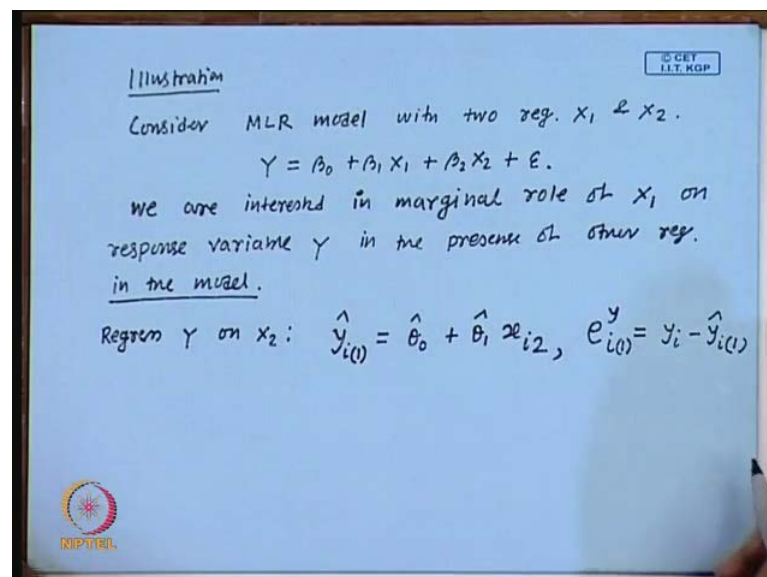 © CET
I.I.T. KGP
Illustration
Consider MLR model with two reg. X₁ & X₂.
Y = β₀ + β₁ X₁ + β₂ X₂ + ε.
we are interested in marginal role of X₁ on
response variable Y in the presence of other reg.
in the model.
Regress Y on X₂ : ŷᵢ₍₁₎ = θ̂₀ + θ̂₁ xᵢ₂, eʸᵢ₍₁₎ = yᵢ − ŷᵢ₍₁₎
NPTEL